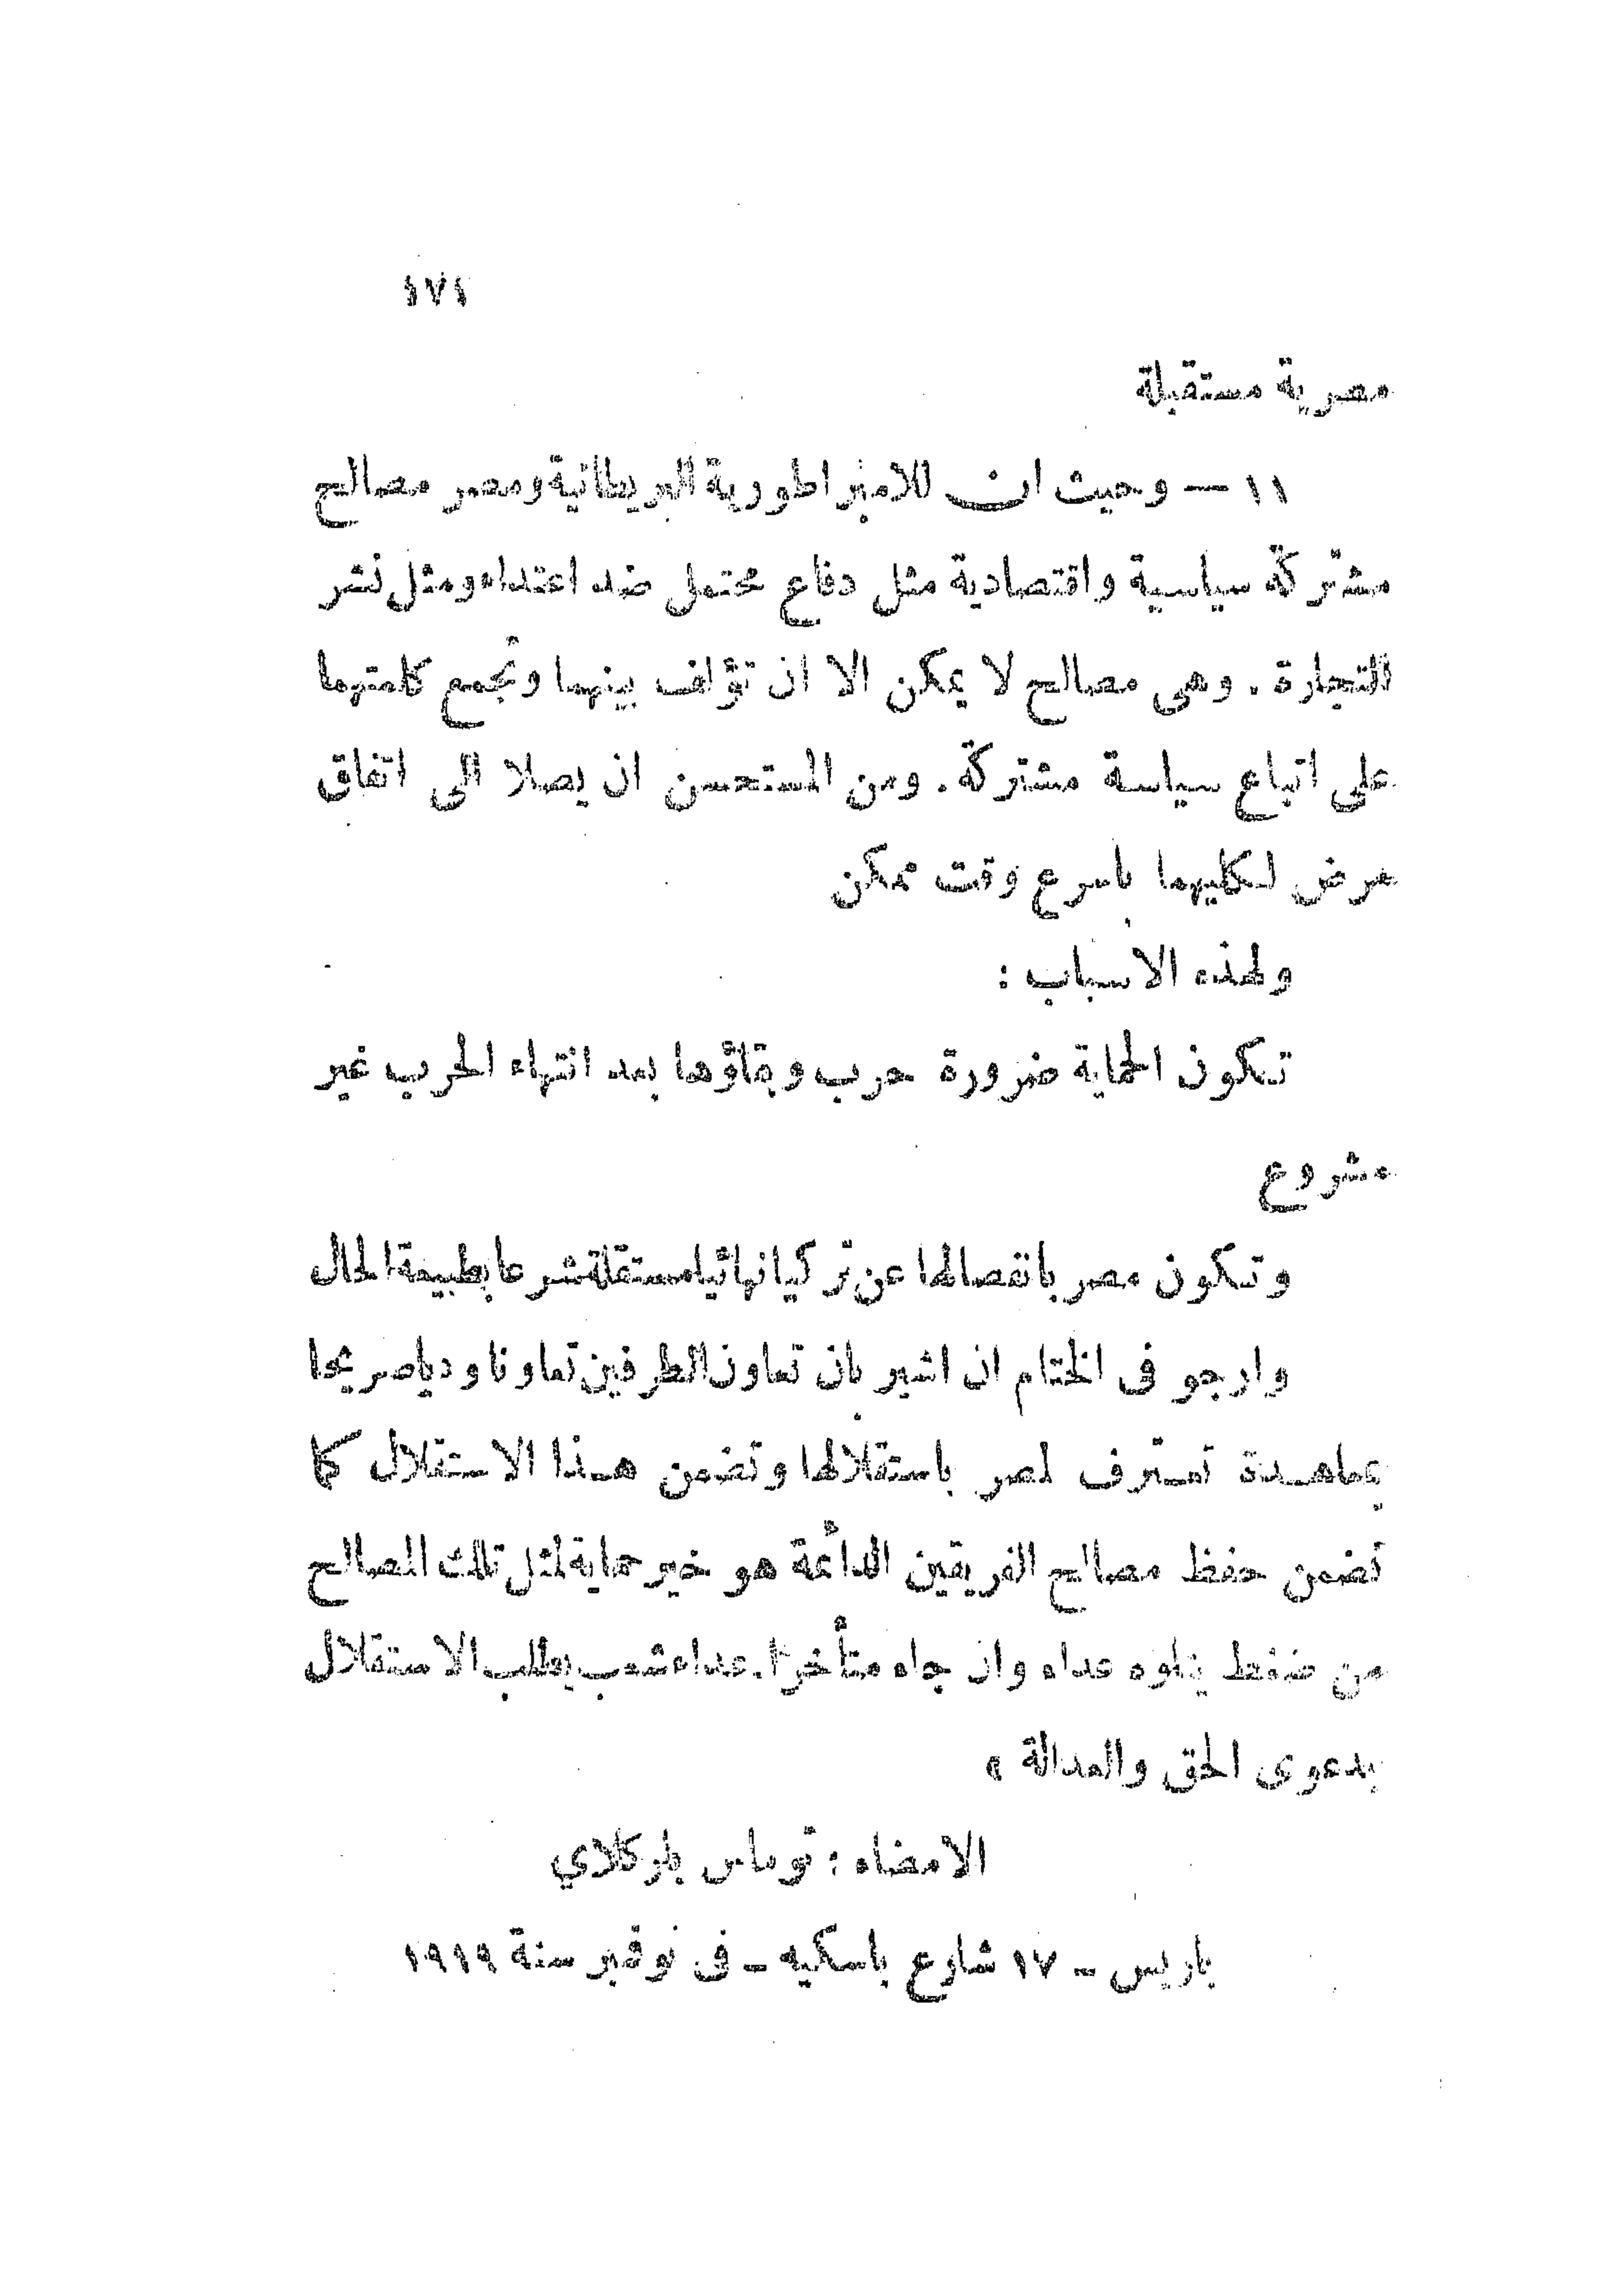 ١٧١
مصرية مستقبلة
١١ — وحيث ان للامبراطورية البريطانية ومصر مصالح
مشتركة سياسية واقتصادية مثل دفاع محتمل ضد اعتداء ومثل نشر
التجارة . وهى مصالح لا يمكن الا ان تؤلف بينهما وتجمع كلمتهما
على اتباع سياسة مشتركة . ومن المستحسن ان يصلا الى اتفاق
مرض لكليهما باسرع وقت ممكن
ولهذه الاسباب :
تكون الحماية ضرورة حرب وبقاؤها بعد انتهاء الحرب غير
مشروع
وتكون مصر بانفصالها عن تركيا نهائيا مستقلة شرعا بطبيعة الحال
وارجو فى الختام ان اشير بان تعاون الطرفين تعاونا وديا صريحا
بمعاهدة تعترف لمصر باستقلالها وتضمن هذا الاستقلال كما
تضمن حفظ مصالح الفريقين الدائمة هو خير حماية لمثل تلك المصالح
من ضغط يتلوه عداء وان جاء متأخرا . عداء شعب يطلب الاستقلال
بدعوى الحق والعدالة »
الامضاء : توماس باركلاي
باريس - ١٧ شارع باسكيه - فى نوفمبر سنة ١٩١٩